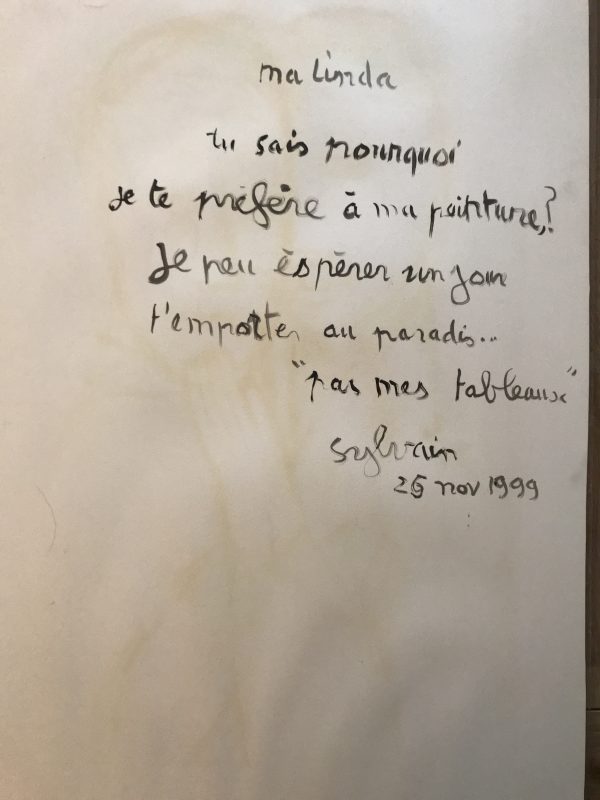 ma Linda
tu sais pourquoi
Je te préfère à ma peinture,?
Je peu èspérer un jour
t'emporter au paradis...
"pas mes tableaux"
Sylvain
25 nov 1999